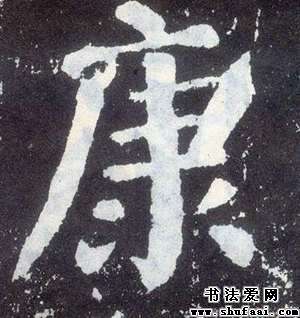 康
书法爱网
www.shufaai.com